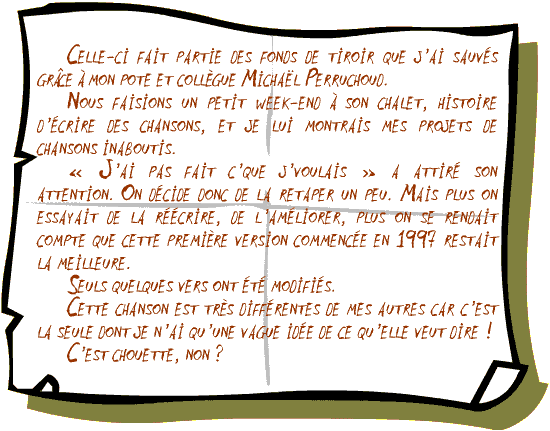 Celle-ci fait partie des fonds de tiroir que j'ai sauvés
grâce à mon pote et collègue Michaël Perruchoud.
Nous faisions un petit week-end à son chalet, histoire
d'écrire des chansons, et je lui montrais mes projets de
chansons inaboutis.
« J'ai pas fait c'que j'voulais » a attiré son
attention. On décide donc de la retaper un peu. Mais plus on
essayait de la réécrire, de l'améliorer, plus on se rendait
compte que cette première version commencée en 1997 restait
la meilleure.
Seuls quelques vers ont été modifiés.
Cette chanson est très différentes de mes autres car c'est
la seule dont je n'ai qu'une vague idée de ce qu'elle veut dire !
C'est chouette, non ?